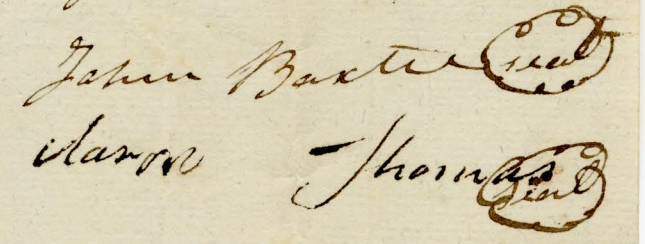 John Baxter seal
Aaron Thomas seal